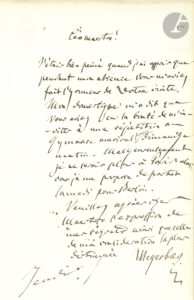 Cher maestro!
J'étais bien peiné quand j'ai appris que
pendant mon absence vous m'aviez
fait l'honneur de votre visite.
Mon domestique m'a dit que
vous aviez eu la bonté de m'in-
viter à une répétition au
Gymnase musical dimanche
matin. Malheureusement
je ne serai plus à
car je me propose de partir
samedi pour Berlin.
Veuillez agréer cher
Maestro l'expression de
mes regrets ainsi que celle
de ma considération la plus
distinguée
Meyerbeer
Jeudi